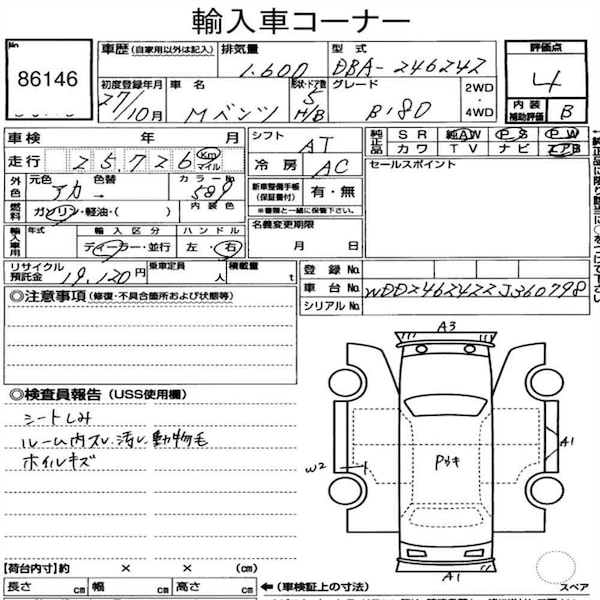 輸入車コーナー
No
86146
車歴 (自家用以外は記入) 排気量 型式
1.600 DBA-246242
評価点
4
初度登録年月 車名 形状・ドア数 グレード
27/10月 Mベンツ 5 H/B B180 2WD・4WD
内装補助評価 B
車検 年 月 シフト AT
純正品 SR 純AW PS PW
カワ TV ナビ エアB
走行 25,726 Km マイル 冷房 AC
セールスポイント
外色 元色 色替 カラーNo
アカ → 589
新車整備手帳(保証書付) 有・無
※書類と一緒に保管下さい。
燃料 ガソリン・軽油・( ) 内装色
名義変更期限
月 日
輸入車用 年式 輸入区分 ハンドル
ディーラー・並行 左・右
リサイクル預託金 19,120円 乗車定員 人 積載量 t
登録No.
車台No. WDD2462422J360798
シリアルNo.
◎注意事項 (修復・不具合箇所および状態等)
◎検査員報告 (USS使用欄)
シートしみ
ルーム内スレ、汚レ、動物毛
ホイルキズ
A3
A1
W2
Pッキ
A1
スペア
【荷台内寸】約 × × (cm)
長さ cm 幅 cm 高さ cm ←(車検証上の寸法)